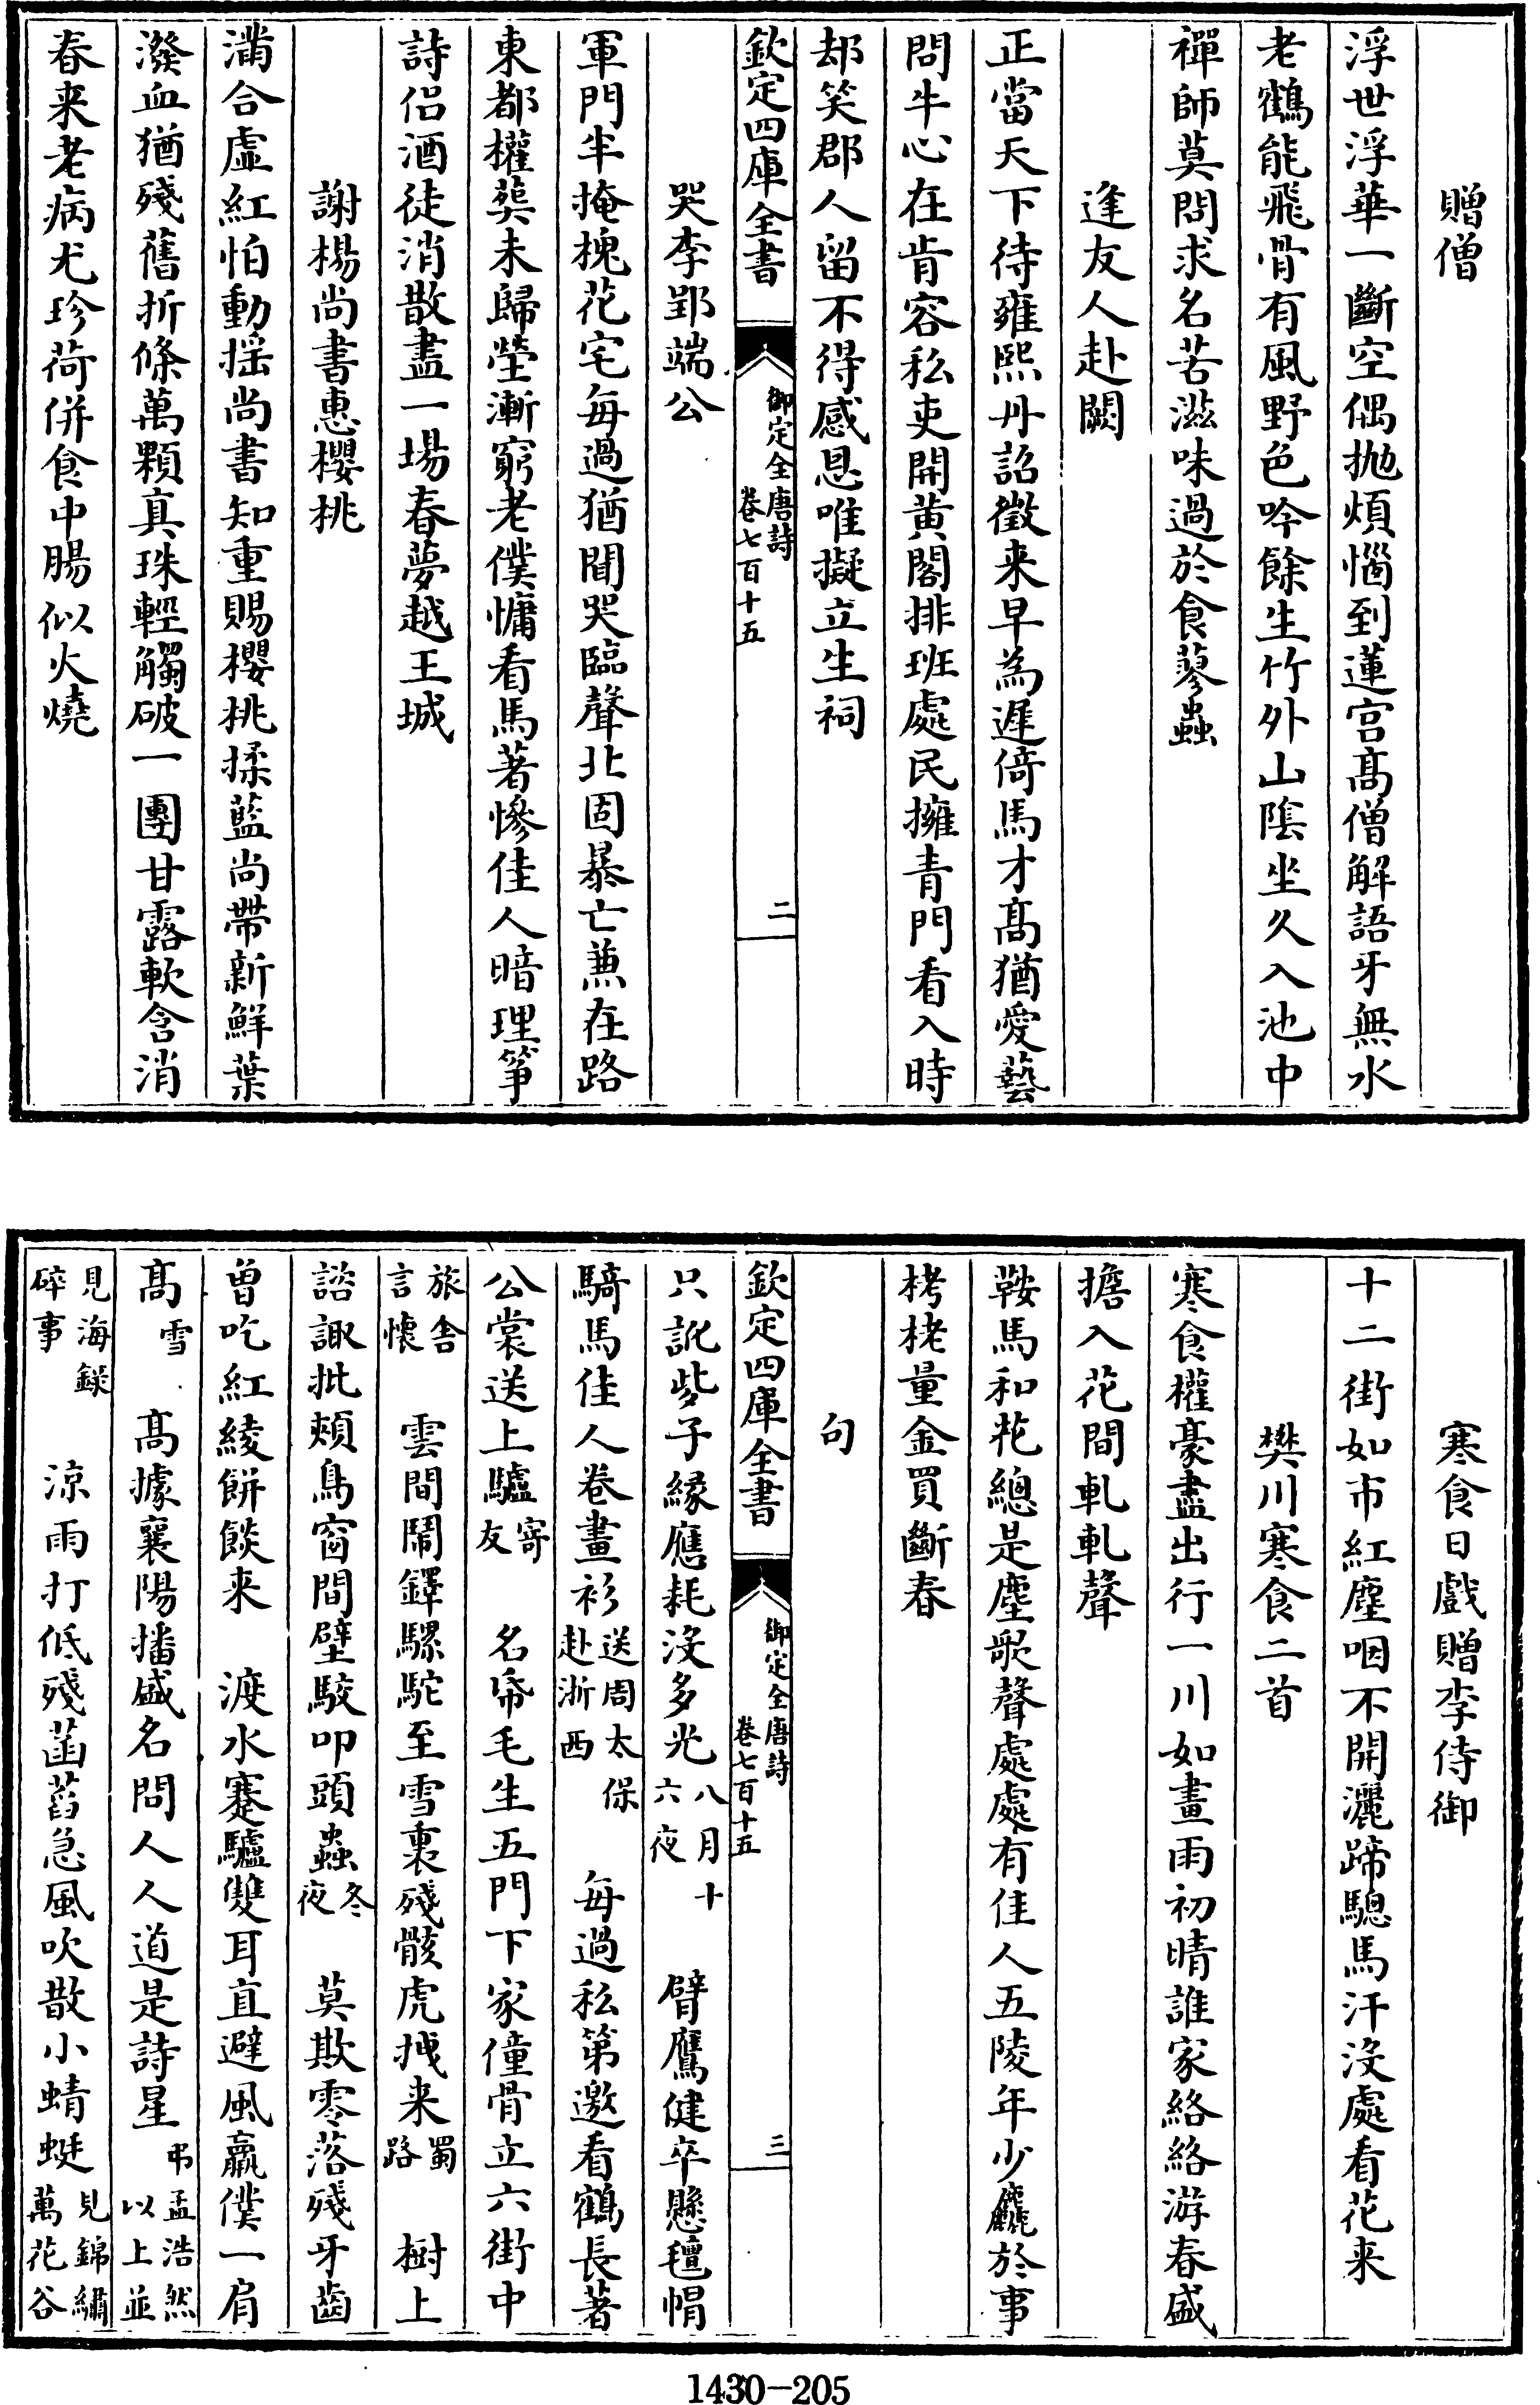 贈僧
浮世浮華一斷空偶抛煩惱到蓮宫髙僧解語牙無水
老鶴能飛骨有風野色吟餘生竹外山隂坐久入池中
禪師莫問求名苦滋味過於食蓼蟲
逢友人赴闕
正當天下待雍熙丹詔徵来早為遲倚馬才髙猶愛藝
問牛心在肯容私吏開黄閣排班處民擁青門看入時
却笑郡人留不得感恩唯擬立生祠
欽定四庫全書
御定全唐詩
卷七百十五
二
哭李郢端公
軍門半掩槐花宅每過猶聞哭臨聲北固暴亡兼在路
東都權葬未歸塋漸窮老僕慵看馬著慘佳人暗理筝
詩侣酒徒消散盡一場春夢越王城
謝楊尚書惠櫻桃
滿合虚紅怕動揺尚書知重賜櫻桃揉藍尚帶新鮮葉
潑血猶殘舊折條萬顆真珠輕觸破一團甘露軟含消
春来老病尤珍荷併食中腸似火燒
寒食日戲贈李侍御
十二街如市紅塵咽不開灑蹄驄馬汗沒處看花来
樊川寒食二首
寒食權豪盡出行一川如畫雨初晴誰家絡絡游春盛
擔入花間軋軋聲
鞍馬和花總是塵歌聲處處有佳人五陵年少麤於事
栲栳量金買斷春
句
欽定四庫全書
御定全唐詩
卷七百十五
三
只訛些子緣應耗沒多光 八月十六夜 臂鷹健卒懸氊帽
騎馬佳人卷畫衫 送周太保赴浙西 每過私第邀看鶴長著
公裳送上驢 寄友 名帋毛生五門下家僮骨立六街中
旅舎言懷 雲間鬧鐸騾駞至雪裏殘骸虎拽来 蜀路 樹上
諮諏批頰鳥窗間壁駮叩頭蟲 冬夜 莫欺零落殘牙齒
曽吃紅綾餅餤来 渡水蹇驢雙耳直避風羸僕一肩
髙 雪 髙據襄陽播盛名問人人道是詩星 弔孟浩然以上並
見海錄碎事 涼雨打低殘菡萏急風吹散小蜻蜓 見錦繡萬花谷
1430-205